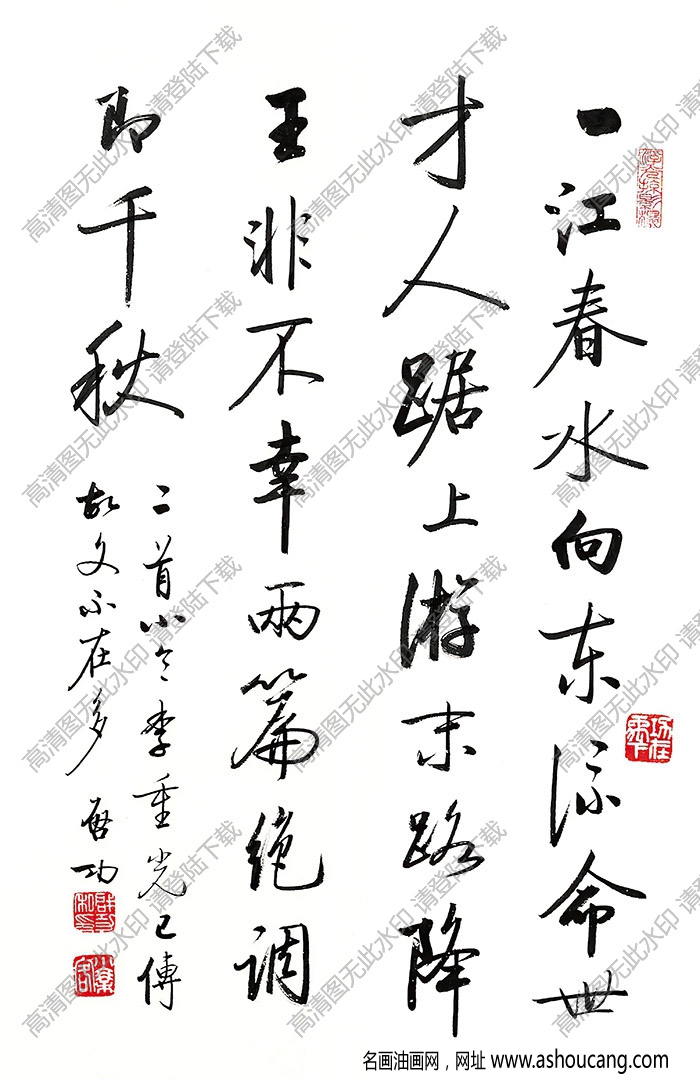 一江春水向东流命世
才人踞上游末路降
王非不幸兩篇绝调
即千秋
二首小令李重光已傳
故文不在多 启功
高清图无此水印 请登陆下载
名画油画网，网址 www.ashoucang.com